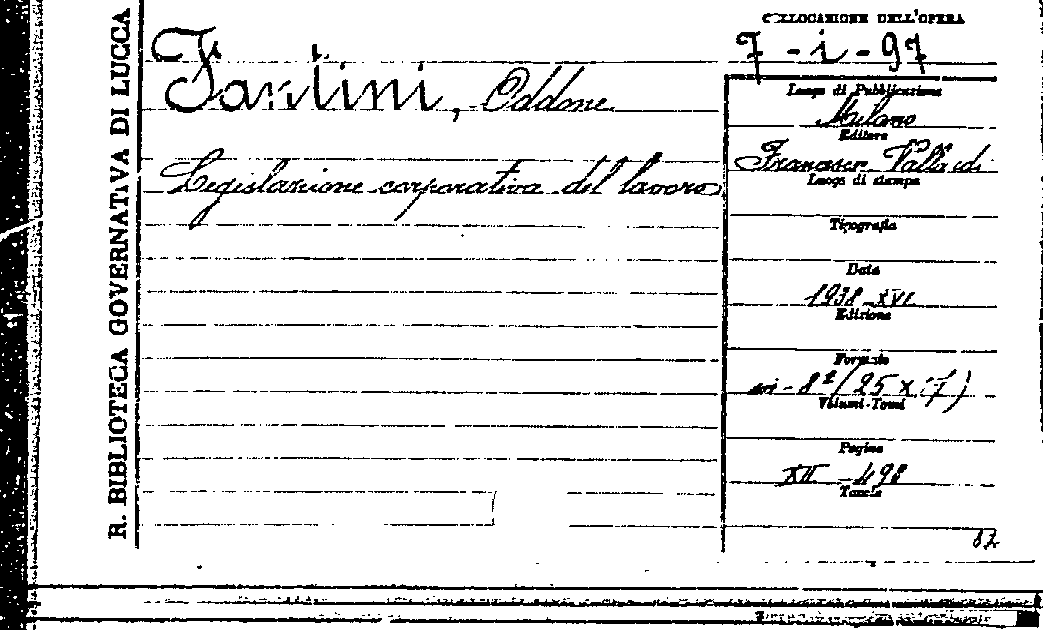 R. BIBLIOTECA GOVERNATIVA DI LUCCA
Fantini, Oddone
Legislazione corporativa del lavoro
COLLOCAZIONE DELL'OPERA
7-i-97
Luogo di Pubblicazione
Milano
Editore
Francesco Vallardi
Luogo di stampa
Tipografia
Data
1938-XVI
Edizione
Formato
in-8º (25 x 17)
Volumi-Tomi
Pagine
XII - 498
Tavole